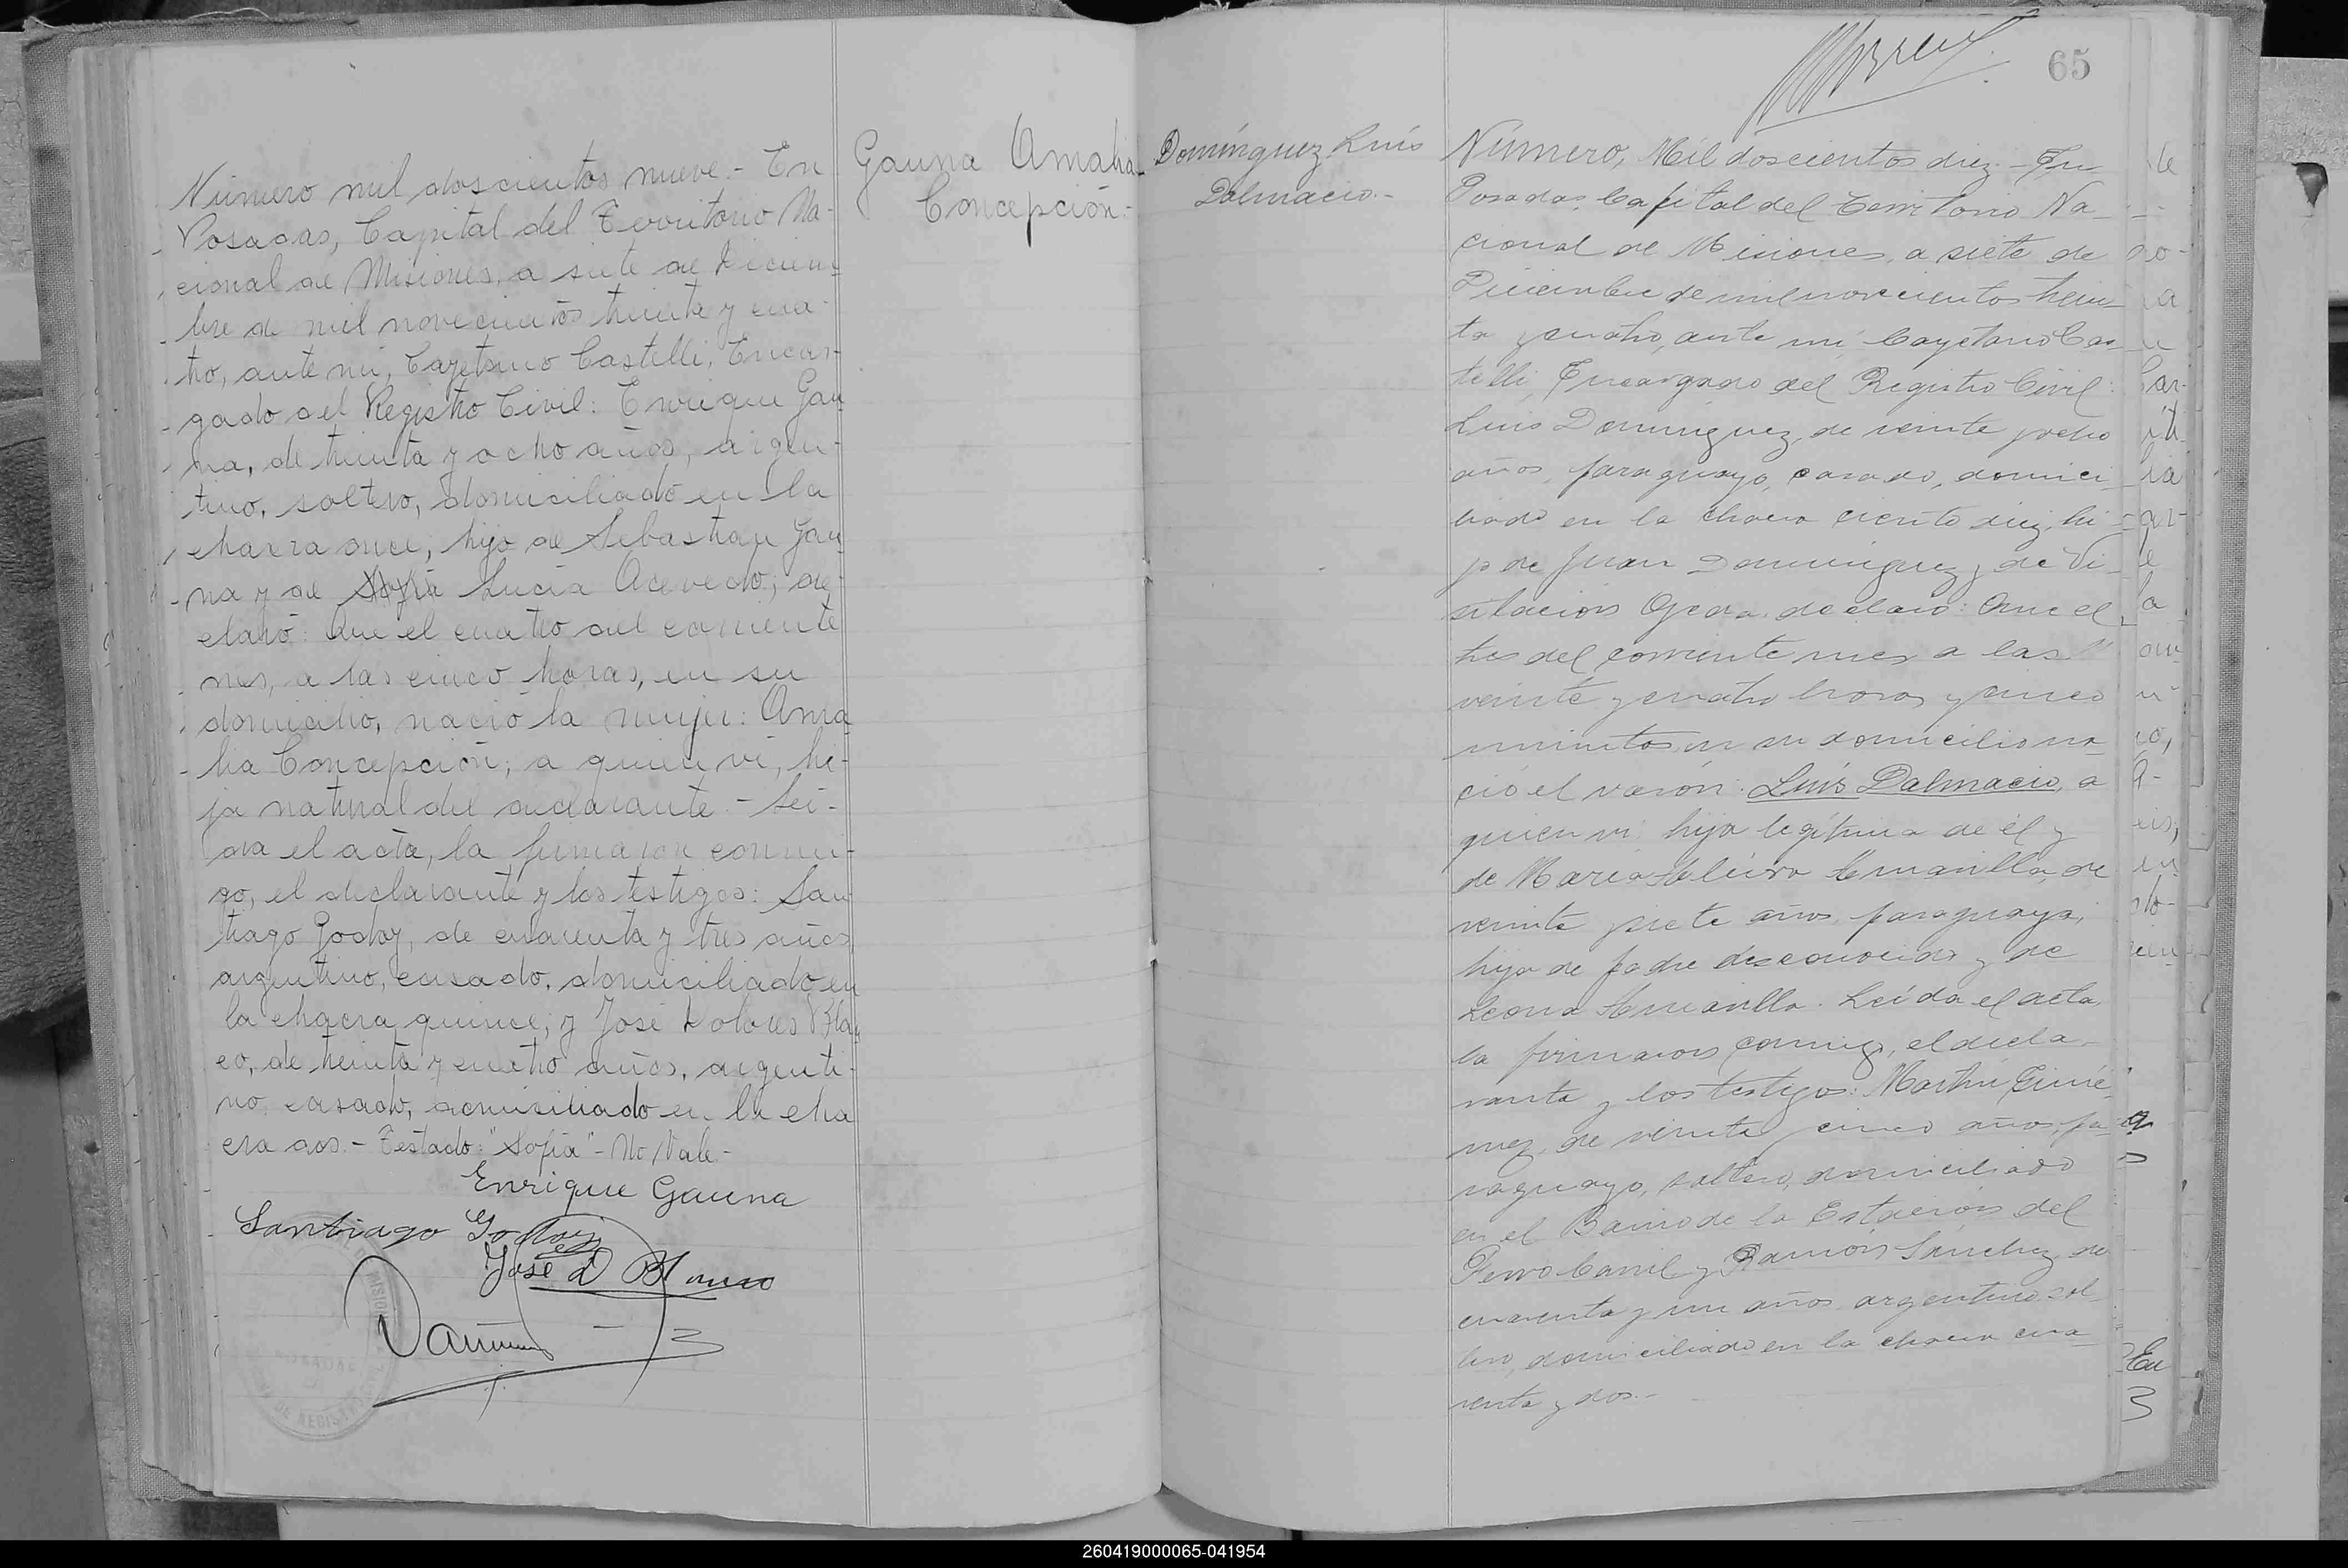 Número mil doscientos nueve.- En
Posadas, Capital del Territorio Na-
cional de Misiones, a siete de Diciem-
bre de mil novecientos treinta y cua-
tro, ante mí, Cayetano Castelli, Encar-
gado del Registro Civil: Enrique Gau-
na, de treinta y ocho años, argen-
tino, soltero, domiciliado en la
chacra once, hijo de Sebastian Gau-
na y de Sofía Lucía Acevedo; de-
claró: Que el cuatro del corriente
mes, a las cinco horas, en su
domicilio, nació la mujer: Ama-
lia Concepción; a quien vi, hi-
ja natural del declarante.- Leí-
da el acta, la firmaron conmi-
go, el declarante y los testigos: San-
tiago Godoy, de cuarenta y tres años,
argentino, casado, domiciliado en
la chacra quince; y José Dolores Blan
co, de treinta y cuatro años, argenti-
no, casado, domiciliado en la cha
cra dos.- Testado: "Sofía"- No Vale.-
Enrique Gauna
Santiago Godoy
José D Blanco
Gauna Amalia
Concepción.-
65
Domínguez Luís
Dalmacio.-
Número, Mil doscientos diez.- En
Posadas, Capital del Territorio Na-
cional de Misiones, a siete de
Diciembre de mil novecientos trein-
ta y cuatro, ante mí Cayetano Cas-
telli, Encargado del Registro Civil:
Luis Domínguez, de veinte y ocho
años, paraguayo, casado, domici-
liado en la chacra ciento diez, hi-
jo de Juan Domínguez y de Vi-
sitación Ojeda, declaró: Que el
tres del corriente mes a las
veinte y cuatro horas y cinco
minutos, en su domicilio na-
ció el varón: Luís Dalmacio, a
quien vi, hijo legítimo de él y
de María, de
veinte y siete años, paraguaya,
hija de padre desconocido y de
Leona. Leída el acta,
la firmaron conmigo, el decla-
rante y los testigos: Martín Gimé-
nez, de veinte y cinco años, pa-
raguayo, soltero, domiciliado
en el Barrio de la Estación del
Ferro Carril y Ramón Sánchez, de
cuarenta y un años, argentino, sol-
tero, domiciliado en la chacra cua-
renta y dos.-
260419000065-041954